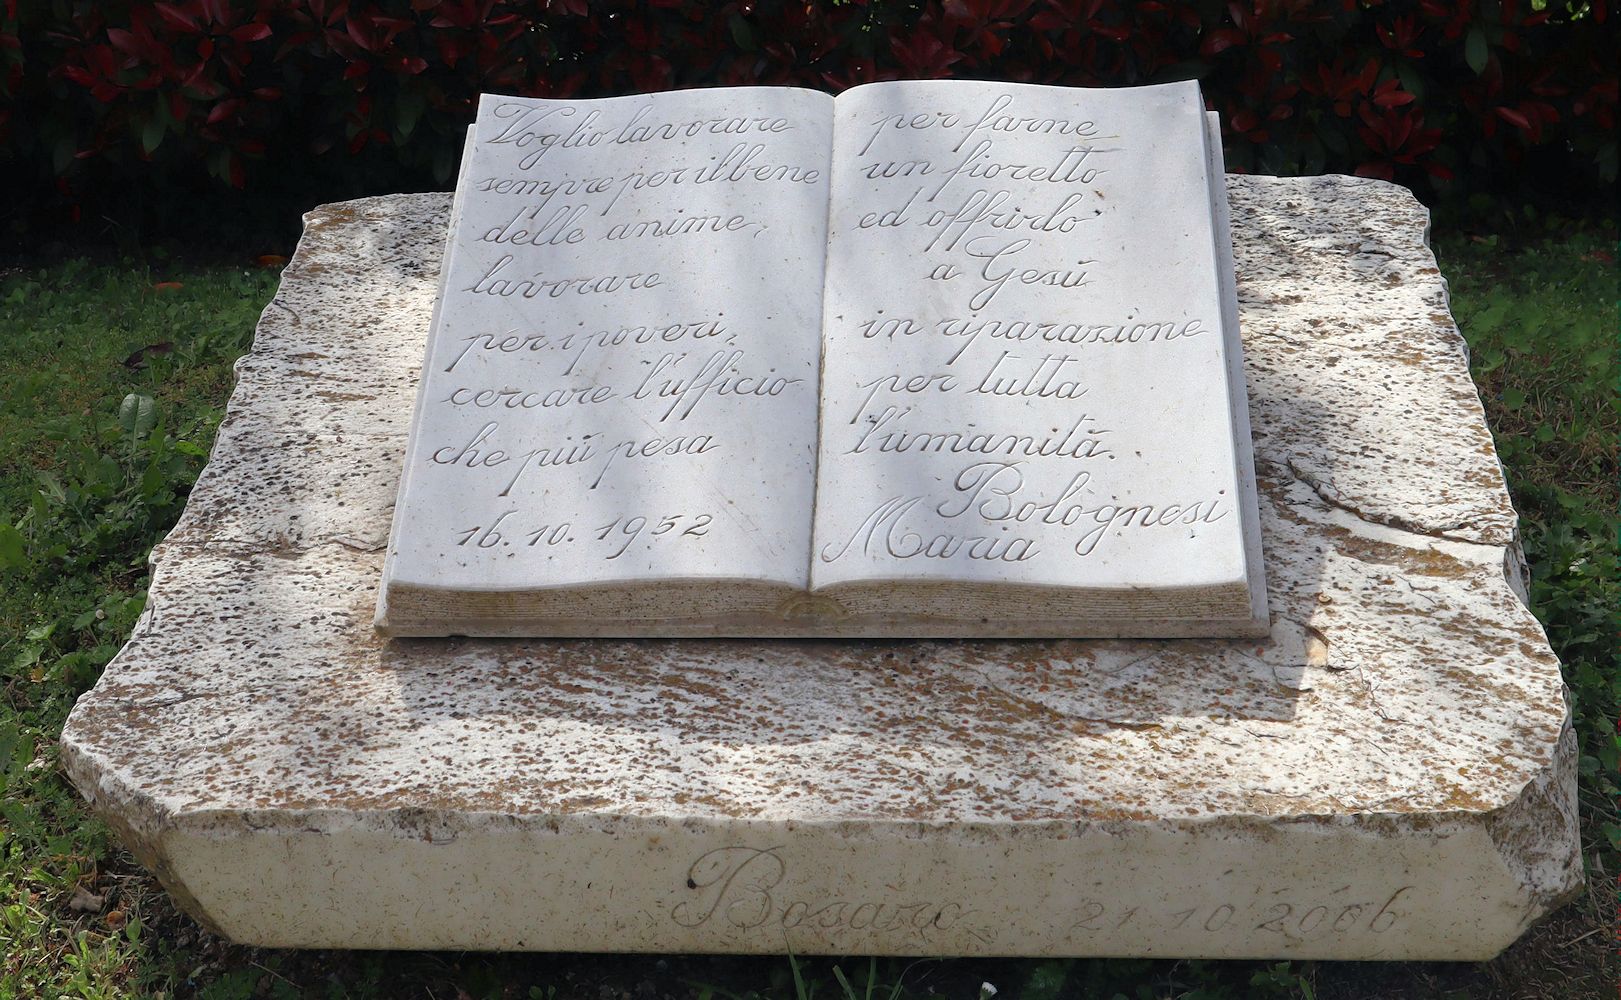 Voglio lavorare
sempre per il bene
delle anime,
lavorare
per i poveri,
cercare l'ufficio
che più pesa
16.10.1952
per farne
un fioretto
ed offrirlo
a Gesù
in riparazione
per tutta
l'umanità.
Bolognesi
Maria
Bosaro 21 10 2006